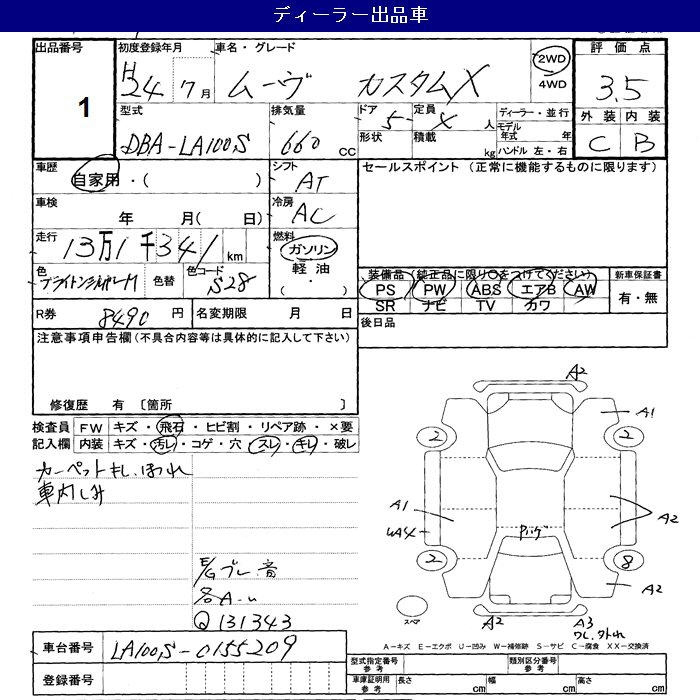 ディーラー出品車
出品番号 1
初度登録年月 H24年 7月
車名・グレード ムーヴ カスタムX
2WD 4WD
評価点 3.5
外装 内装
C B
型式 DBA-LA100S
排気量 660 cc
ドア 5 定員 4 人
形状 積載 kg
ディーラー・並行
モデル年式 年
ハンドル 左・右
車歴 自家用・( )
シフト AT
セールスポイント (正常に機能するものに限ります)
車検 年 月( 日)
冷房 AC
走行 13万1千341 km
燃料 ガソリン
軽油
( ・ )
色 ブライトシルバーM 色替 色コード S28
装備品 (純正品に限り○をつけてください)
PS PW ABS エアB AW
SR ナビ TV カワ
新車保証書
有・無
R券 8490 円 名変期限 月 日
後日品
注意事項申告欄(不具合内容等は具体的に記入して下さい)
修復歴 有 〔箇所 〕
検査員 記入欄
FW キズ・飛石・ヒビ割・リペア跡・×要
内装 キズ・汚レ・コゲ・穴・スレ・キレ・破レ
カーペットキレ、ほつれ
車内しみ
E/Gブレ、音
各A-u
Q 131343
A2
A1
2 2
A1
UA4
A2
Pバゲ
2 8
A2
スペア
A2 A3
ワレ、外れ
A−キズ E−エクボ U−凹み W−補修跡 S−サビ C−腐食 XX−交換済
車台番号 LA100S-0155209
登録番号
型式指定番号 参考
類別区分番号 参考
車庫証明用 参考 長さ cm 幅 cm 高さ cm